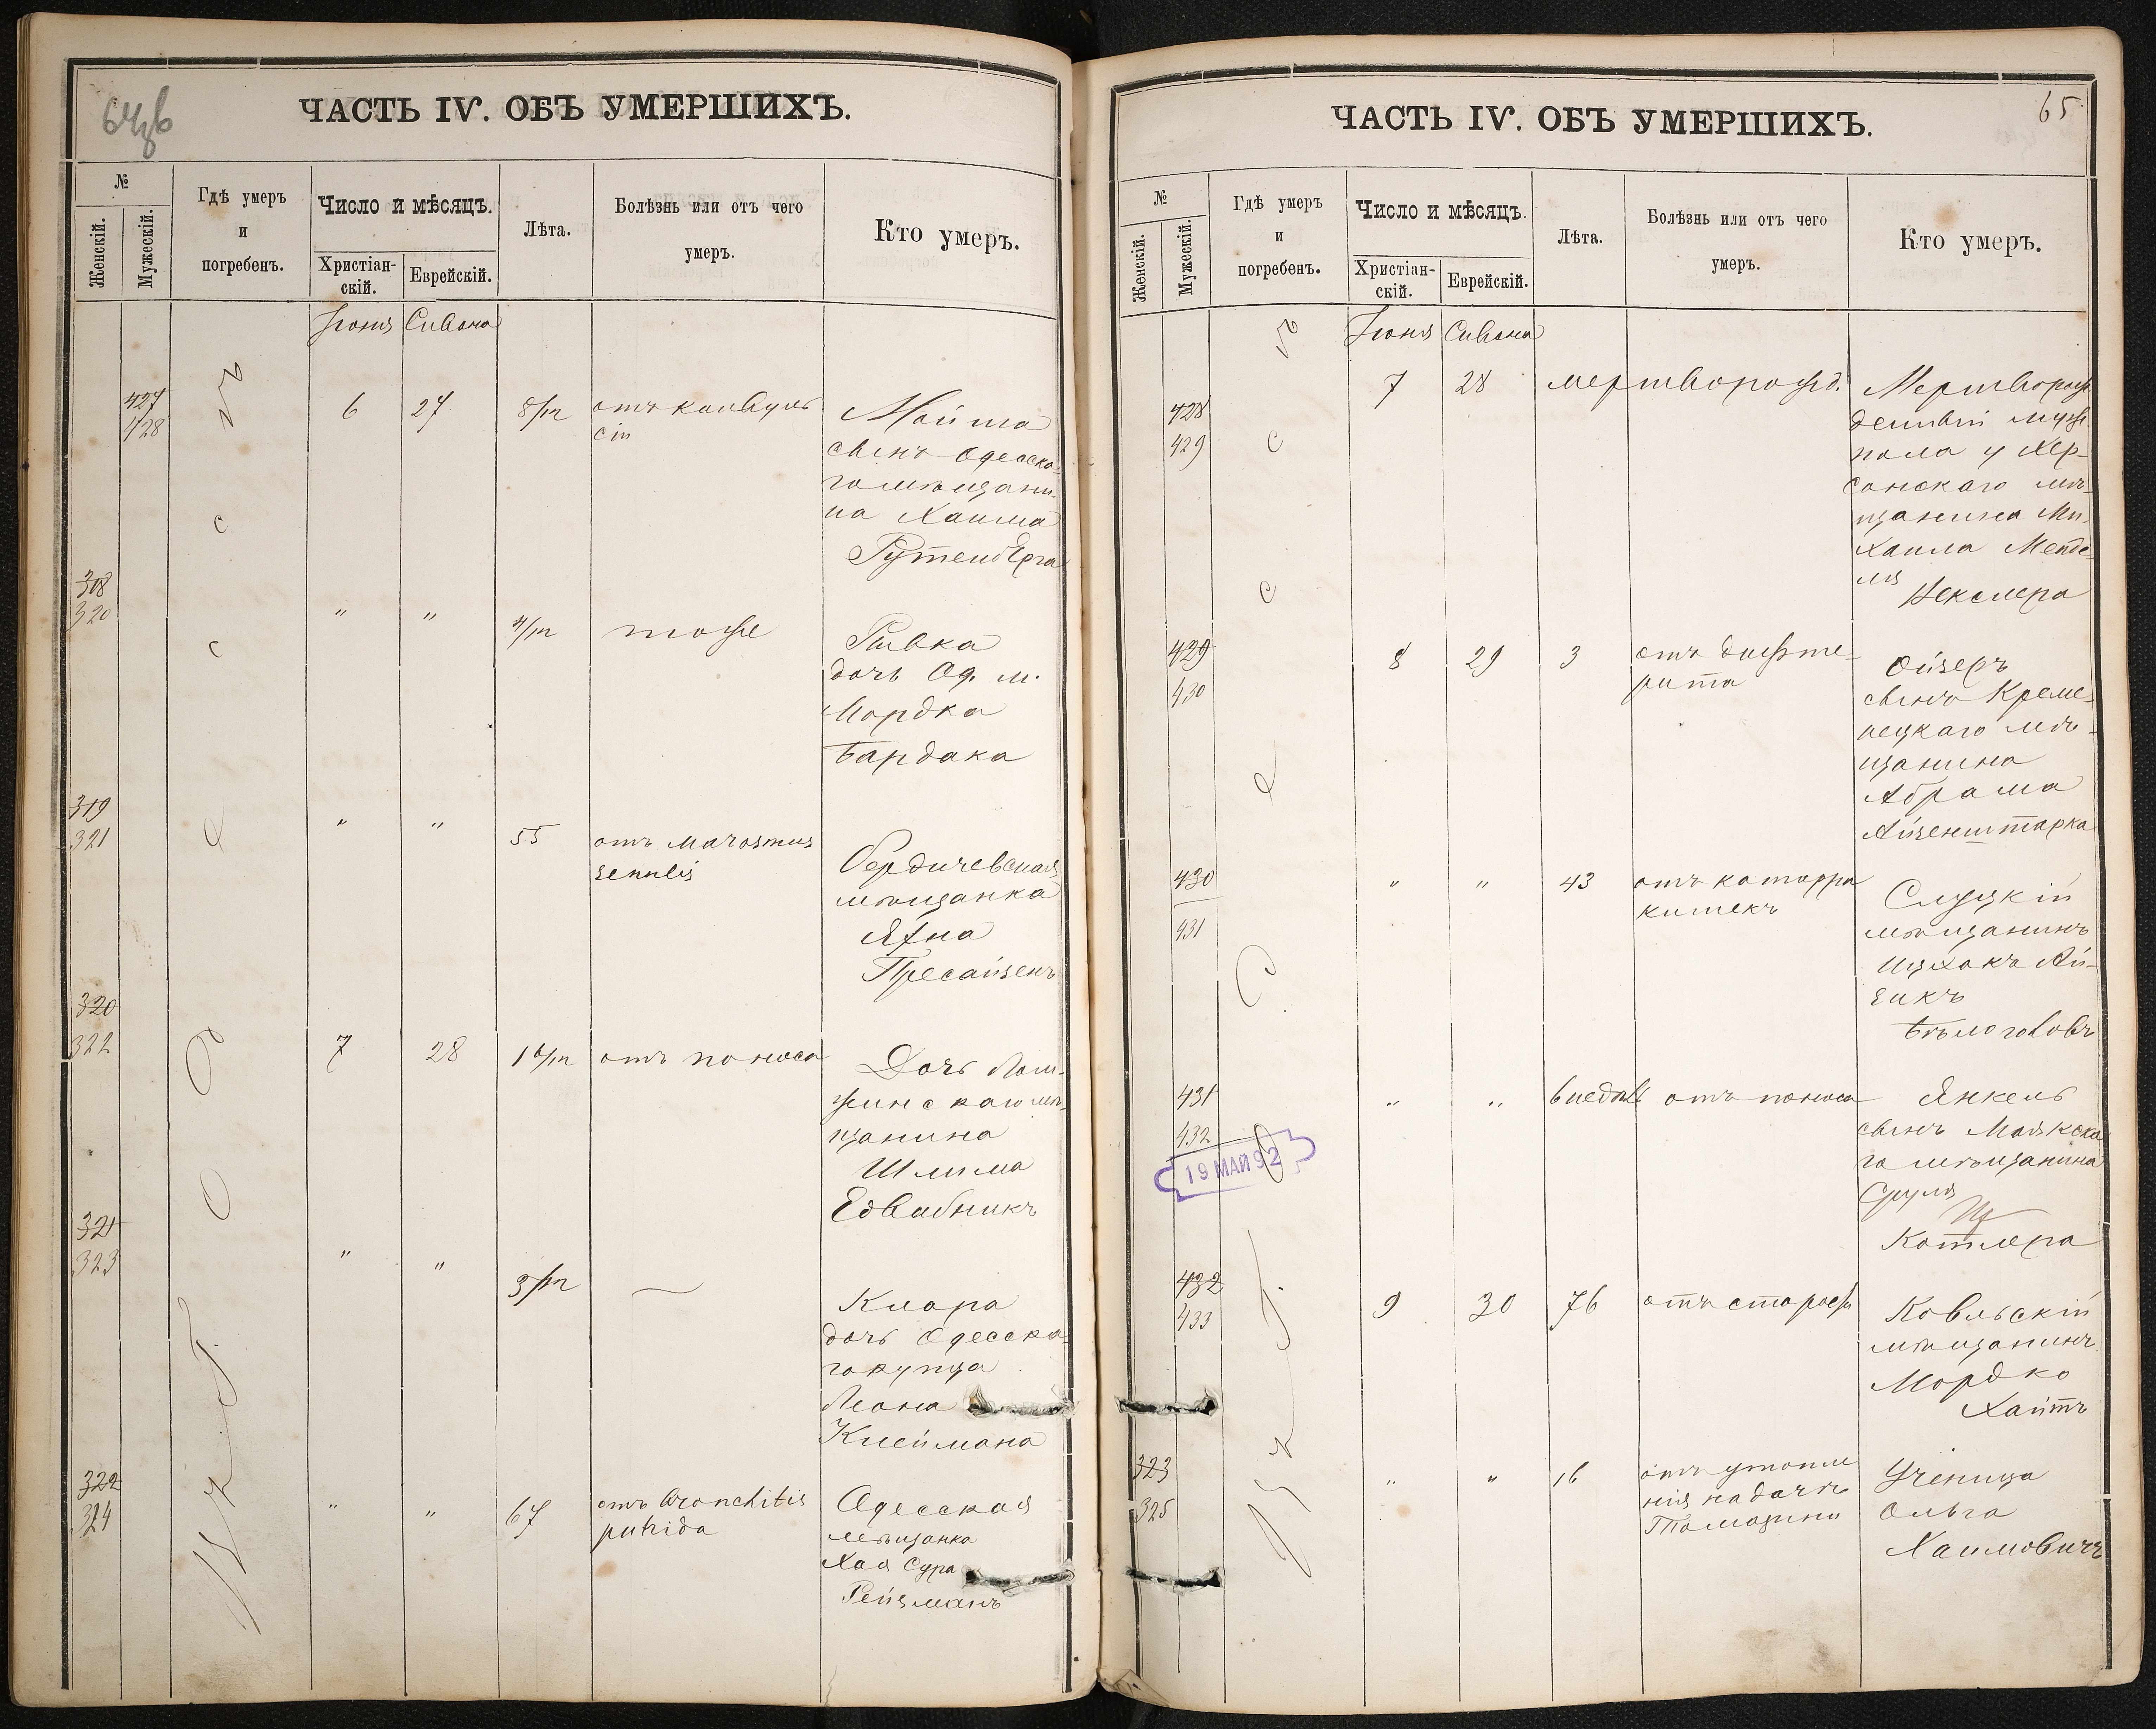 64об
ЧАСТЬ IV. ОБЪ УМЕРШИХЪ.
№
Женскій.
Мужескій.
Гдѣ умеръ
и
погребенъ.
Число и мѣсяцъ.
Христіан-
скій.
Еврейскій.
Лѣта.
Болѣзнь или отъ чего
умеръ.
Кто умеръ.
Іюня Сивана
въ
427
428
6 27 8/m
отъ конвуль
сіи
Мойша
сынъ Одесска-
го мѣщани-
на Хаима
Рутенберга
с
318
320
" " 4/m тоже
Рывка
дочь Од. м.
Мордка
Бардака
с
319
321
" " 55
отъ marasmus
senilis
Бердичевская
мѣщанка
Яхна
Пресайзенъ
е
320
322
7 28 10/m отъ поноса
Дочь Лом-
жинскаго мѣ-
щанина
Шлима
Едвабникъ
д
О
321
323
" " 3/m —
Клара
дочь Одесска-
го купца
Леона
Клеймана
г.
322
324
" " 67
отъ bronchitis
putrida
Одесская
мѣщанка
Хая Сура
Рейзманъ
65
ЧАСТЬ IV. ОБЪ УМЕРШИХЪ.
№
Женскій.
Мужескій.
Гдѣ умеръ
и
погребенъ.
Число и мѣсяцъ.
Христіан-
скій.
Еврейскій.
Лѣта.
Болѣзнь или отъ чего
умеръ.
Кто умеръ.
Іюня Сивана
въ
428
429
7 28 мертворожд.
Мертворож
денный муж.
пола у Хер-
сонскаго мѣ-
щанина Ми-
хаила Менде-
ля
Векслера
с
с
429
430
8 29 3
отъ дифте-
рита
Ойзеръ
сынъ Креме-
нецкаго мѣ-
щанина
Абрама
Айзенштарка
е
430
431
" " 43
отъ катарра
кишекъ
Слуцкій
мѣщанинъ
Ицхокъ Ай-
зикъ
Бѣлоголовъ
д
431
432
" " 6 недѣль отъ поноса
Янкель
сынъ Маякска
го мѣщанина
Сруля
Котлера
О
19 МАЙ 92
г.
432
433
9 30 76 отъ старости
Ковельскій
мѣщанинъ
Мордко
Хаитъ
323
325
" " 16
отъ утопле
нія на дачѣ
Томазини
Ученица
Ольга
Хаимовичъ